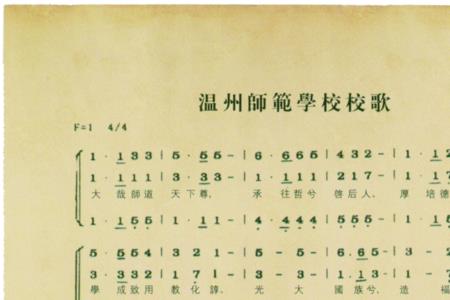 温州師範學校校歌
F=1 4/4
1 · 1 3 3 | 5 · 5 5 - | 6 · 6 6 5 | 4 3 2 - | 1 · 1 2
1 · 1 1 1 | 3 · 3 3 - | 1 · 1 1 1 | 2 1 7 - | 1 · 1 7
大 哉師道 天下尊， 承 往哲兮 啓后人， 厚 培德
1 · 1 5 5 | 1 · 1 1 - | 4 · 4 4 4 | 5 5 5 - | 1 · 1 5
5 · 5 5 4 | 3 2 1 - | 5 - 5 - | 6 · 6 5 - | 3 - 2
3 · 3 3 2 | 1 7 1 - | 3 - 3 - | 1 · 1 3 - | 1 - 7
學 成致用 教化諄， 光 大 國 族兮， 造 福